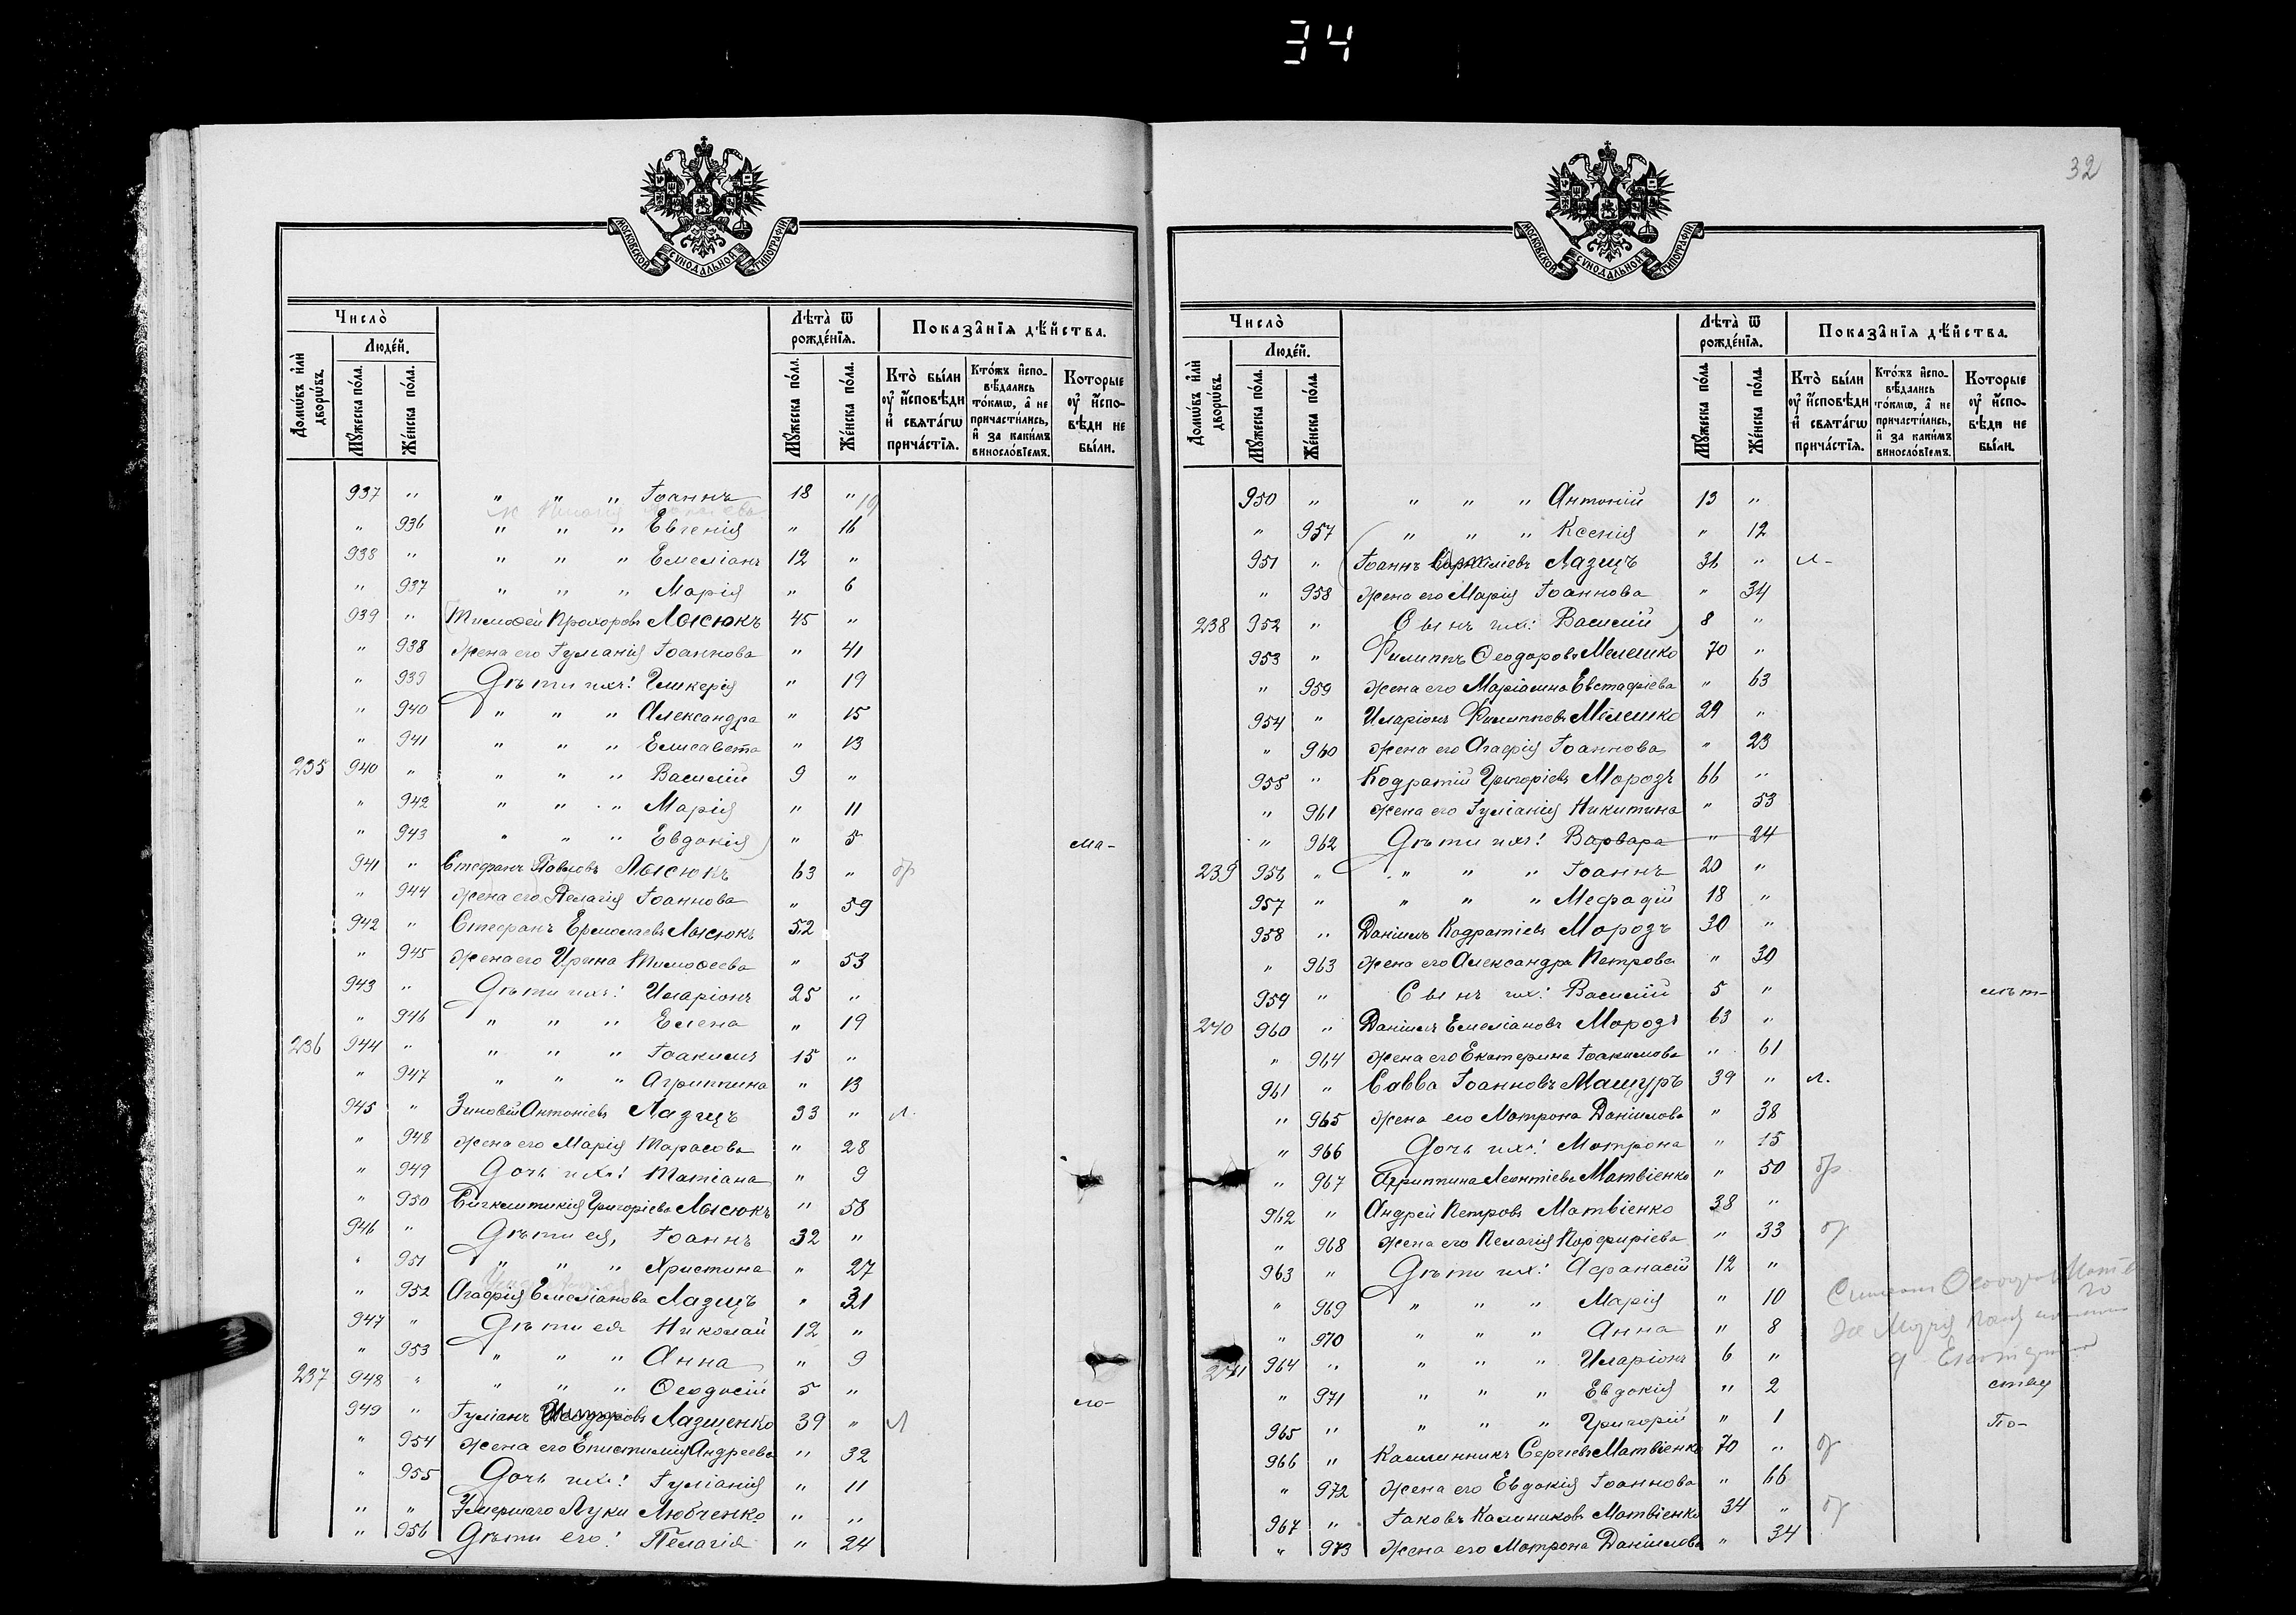 34
32
МОСКОВСКОЙ СѴНОДАЛЬНОЙ ТИПОГРАФІИ
Число̀
Люде́й.
Домѡ́въ и҆лѝ дворѡ́въ.
Мꙋ́жеска по́ла.
Же́нска по́ла.
Лѣ́та ѿ рожде́нїѧ.
Мꙋ́жеска по́ла.
Же́нска по́ла.
Показа̂нїѧ дѣ́йства.
Кто̀ бы́ли ᲂу҆ и҆сповѣ́ди и҆ свѧта́гѡ прича́стїѧ.
Кто́жъ и҆спо-вѣ́дались то́кмѡ, а҆ не причасти́лись, и҆ за каки́мъ винослові́емъ.
Которые ᲂу҆ и҆спо-вѣ́ди не бы́ли.
937 " " " " Іоаннъ 18 " 19
" 936 " " " Евгенія " 16
938 " " " " Емеліанъ 12 "
" 937 " " " Марія " 6
939 " Тимоѳей Прохоровъ Лысюкъ 45 "
" 938 Жена его Іуліанія Іоаннова " 41
" 939 Дѣти ихъ: Гликерія " 19
" 940 " " " Александра " 15
" 941 " " " Елисавета " 13
235 940 " " " " Василій 9 "
" 942 " " " Марія " 11
" 943 " " " Евдокія " 5 ма-
941 " Стефанъ Павловъ Лысюкъ 63 " бр
" 944 Жена его Пелагія Іоаннова " 59
942 " Стефанъ Ермолаевъ Лысюкъ 52
" 945 Жена его Ирина Тимоѳеева " 53
943 " Дѣти ихъ: Иларіонъ 25 "
" 946 " " " Елена " 19
236 944 " " " " Іоакимъ 15 "
" 947 " " " Агриппина " 13
945 " Зиновій Антоніевъ Лазецъ 33 " л.
" 948 Жена его Марія Тарасова " 28
" 949 Дочь ихъ: Татіана " 9
" 950 Григоріева Лысюкъ " 58
946 " Дѣти ея, Іоаннъ 32 "
" 951 " " " Христина " 27
" 952 Агафія Емеліанова Лазецъ " 31
947 " Дѣти ея Николай 12 "
" 953 " " " Анна " 9
237 948 " " " " Ѳеодосій 5 " ло-
949 " Іуліанъ Лазещенко 39 " Л
" 954 Жена его Епистимія Андреева " 32
" 955 Дочь ихъ: Іуліанія " 11
" " Умершаго Луки Любченко " "
" 956 Дѣти его: Пелагія " 24
Число̀
Люде́й.
Домѡ́въ и҆лѝ дворѡ́въ.
Мꙋ́жеска по́ла.
Же́нска по́ла.
МОСКОВСКОЙ СѴНОДАЛЬНОЙ ТИПОГРАФІИ
Лѣ́та ѿ рожде́нїѧ.
Мꙋ́жеска по́ла
Же́нска по́ла.
Показа̂нїѧ дѣ́йства.
Кто̀ бы́ли ᲂу҆ и҆сповѣ́ди и҆ свѧта́гѡ прича́стїѧ.
Кто́жъ и҆спо-вѣ́дались то́кмѡ, а҆ не причасти́лись, и҆ за каки́мъ винослові́емъ.
Которые ᲂу҆ и҆спо-вѣ́ди не бы́ли.
950 " " " " Антоній 13 "
" 957 " " " Ксенія " 12
951 " Іоаннъ Лазецъ 36 " л-
" 958 Жена его Марія Іоаннова " 34
238 952 " Сынъ ихъ: Василій 8 "
953 " Филиппъ Ѳеодоровъ Мелешко 70 "
" 959 Жена его Маріамна Евстафіева " 63
954 " Иларіонъ Филипповъ Мелешко 29 "
" 960 Жена его Агафія Іоаннова " 23
955 " Кодратій Григоріевъ Морозъ 66 "
" 961 Жена его Іуліанія Никитина " 53
" 962 Дѣти ихъ: Варвара " 24
239 956 " " " " Іоаннъ 20 "
957 " " " " Мефодій 18 "
958 " Даніилъ Кодратіевъ Морозъ 30 "
" 963 Жена его Александра Петрова " 30
959 " Сынъ ихъ: Василій 5 " лѣт-
240 960 " Даніилъ Емеліановъ Морозъ 63 "
" 964 Жена его Екатерина Іоакимова " 61
961 " Савва Іоанновъ Мащуръ 39 " л.
" 965 Жена его Матрона Даніилова " 38
" 966 Дочь ихъ: Матрона " 15
" 967 Агриппина Леонтіева Матвіенко " 50 бр
962 " Андрей Петровъ Матвіенко 38 "
" 968 Жена его Пелагія Порфиріева " 33 бр
963 " Дѣти ихъ: Аѳанасій 12 "
" 969 " " " Марія " 10
" 970 " " " Анна " 8
241 964 " " " " Иларіонъ 6 "
" 971 " " " Евдокія " 2
965 " " " " Григорій " 1 По-
966 " Каллинникъ Сергіевъ Матвіенко 70 " бр
" 972 Жена его Евдокія Іоаннова " 66
967 " Іаковъ Калиниковъ Матвіенко 34 " бр
" 973 Жена его Матрона Даніилова " 34